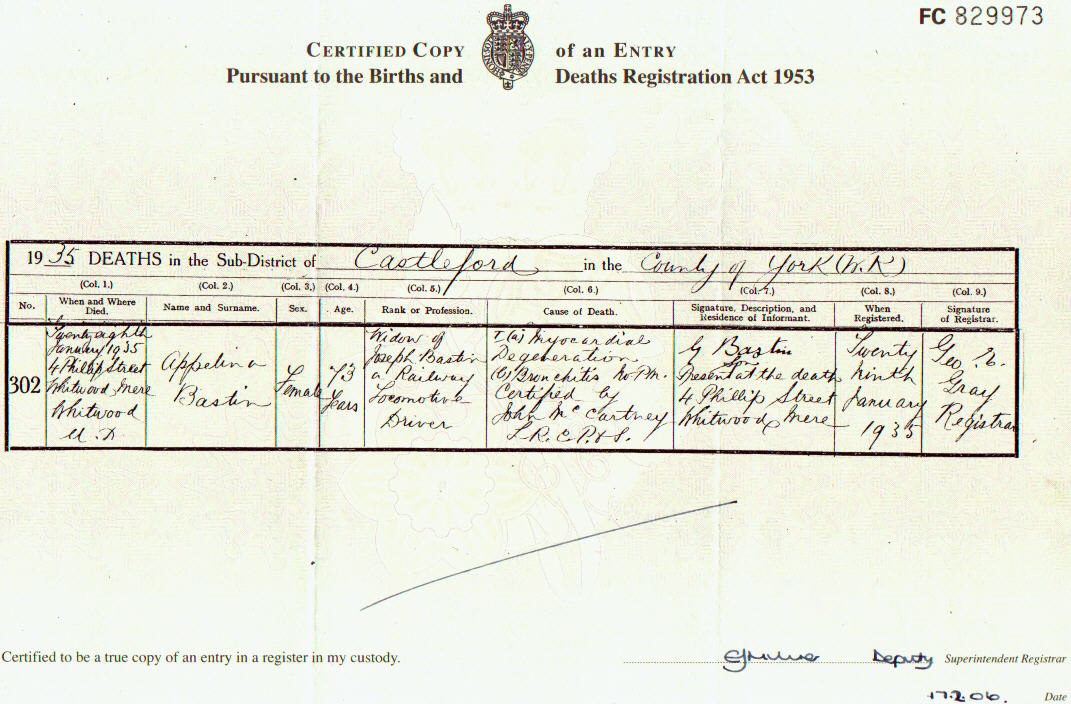 FC 829973
CERTIFIED COPY of an ENTRY
Pursuant to the Births and Deaths Registration Act 1953
1935 DEATHS in the Sub-District of Castleford in the County of York (W.R)
(Col. 1.) (Col. 2.) (Col. 3.) (Col. 4.) (Col. 5.) (Col. 6.) (Col. 7.) (Col. 8.) (Col. 9.)
No. When and Where Died. Name and Surname. Sex. Age. Rank or Profession. Cause of Death. Signature, Description, and Residence of Informant. When Registered. Signature of Registrar.
302
Twenty eighth
January 1935
4 Phillip Street
Whitwood Mere
Whitwood
U.D
Appelina
Bastin
Female
73
Years
Widow of
Joseph Bastin
a Railway
Locomotive
Driver
I (a) Myocardial
Degeneration
(b) Bronchitis No P.M.
Certified by
John McCartney
L.R.C.P.&S.
G Bastin
Son
Present at the death
4 Phillip Street
Whitwood Mere
Twenty
ninth
January
1935
Geo.
Gray
Registrar
Certified to be a true copy of an entry in a register in my custody.
Deputy Superintendent Registrar
17.2.06. Date